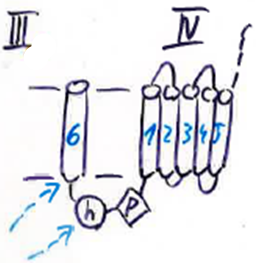 III IV
6 1 2 3 4 5
h P